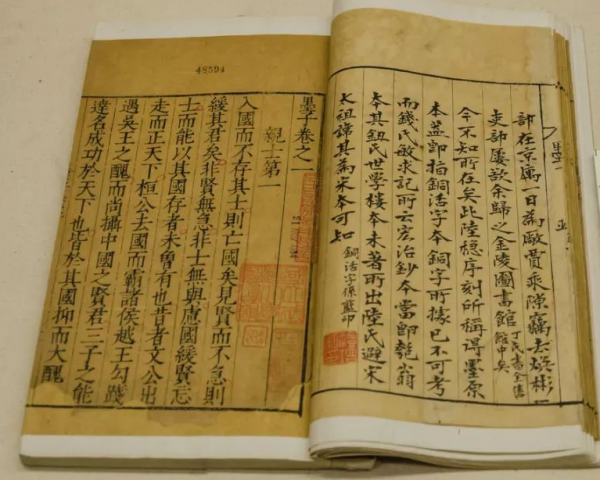 部在京寓一日為廠賈乘隙竊去煥彬
吏部屢欲余歸之金陵圖書館丁氏書全售館中矣
今不知所在矣此陸穩序刻所稱得墨原
本蓋即指銅活字本銅字所據已不可考
而錢氏敏求記所云宏治鈔本當即匏翁
本其鈕氏世學樓本未著所出陸氏避宋
太祖諱其為宋本可知銅活字係藍印
48594
墨子卷之一
親士第一
入國而不存其士則亡國矣見賢而不急則
緩其君矣非賢無急非士無與慮國緩賢忘
士而能以其國存者未曾有也昔者文公出
走而正天下桓公去國而霸諸侯越王勾踐
遇吳王之醜而尚攝中國之賢君三子之能
達名成功於天下也皆於其國抑而大醜